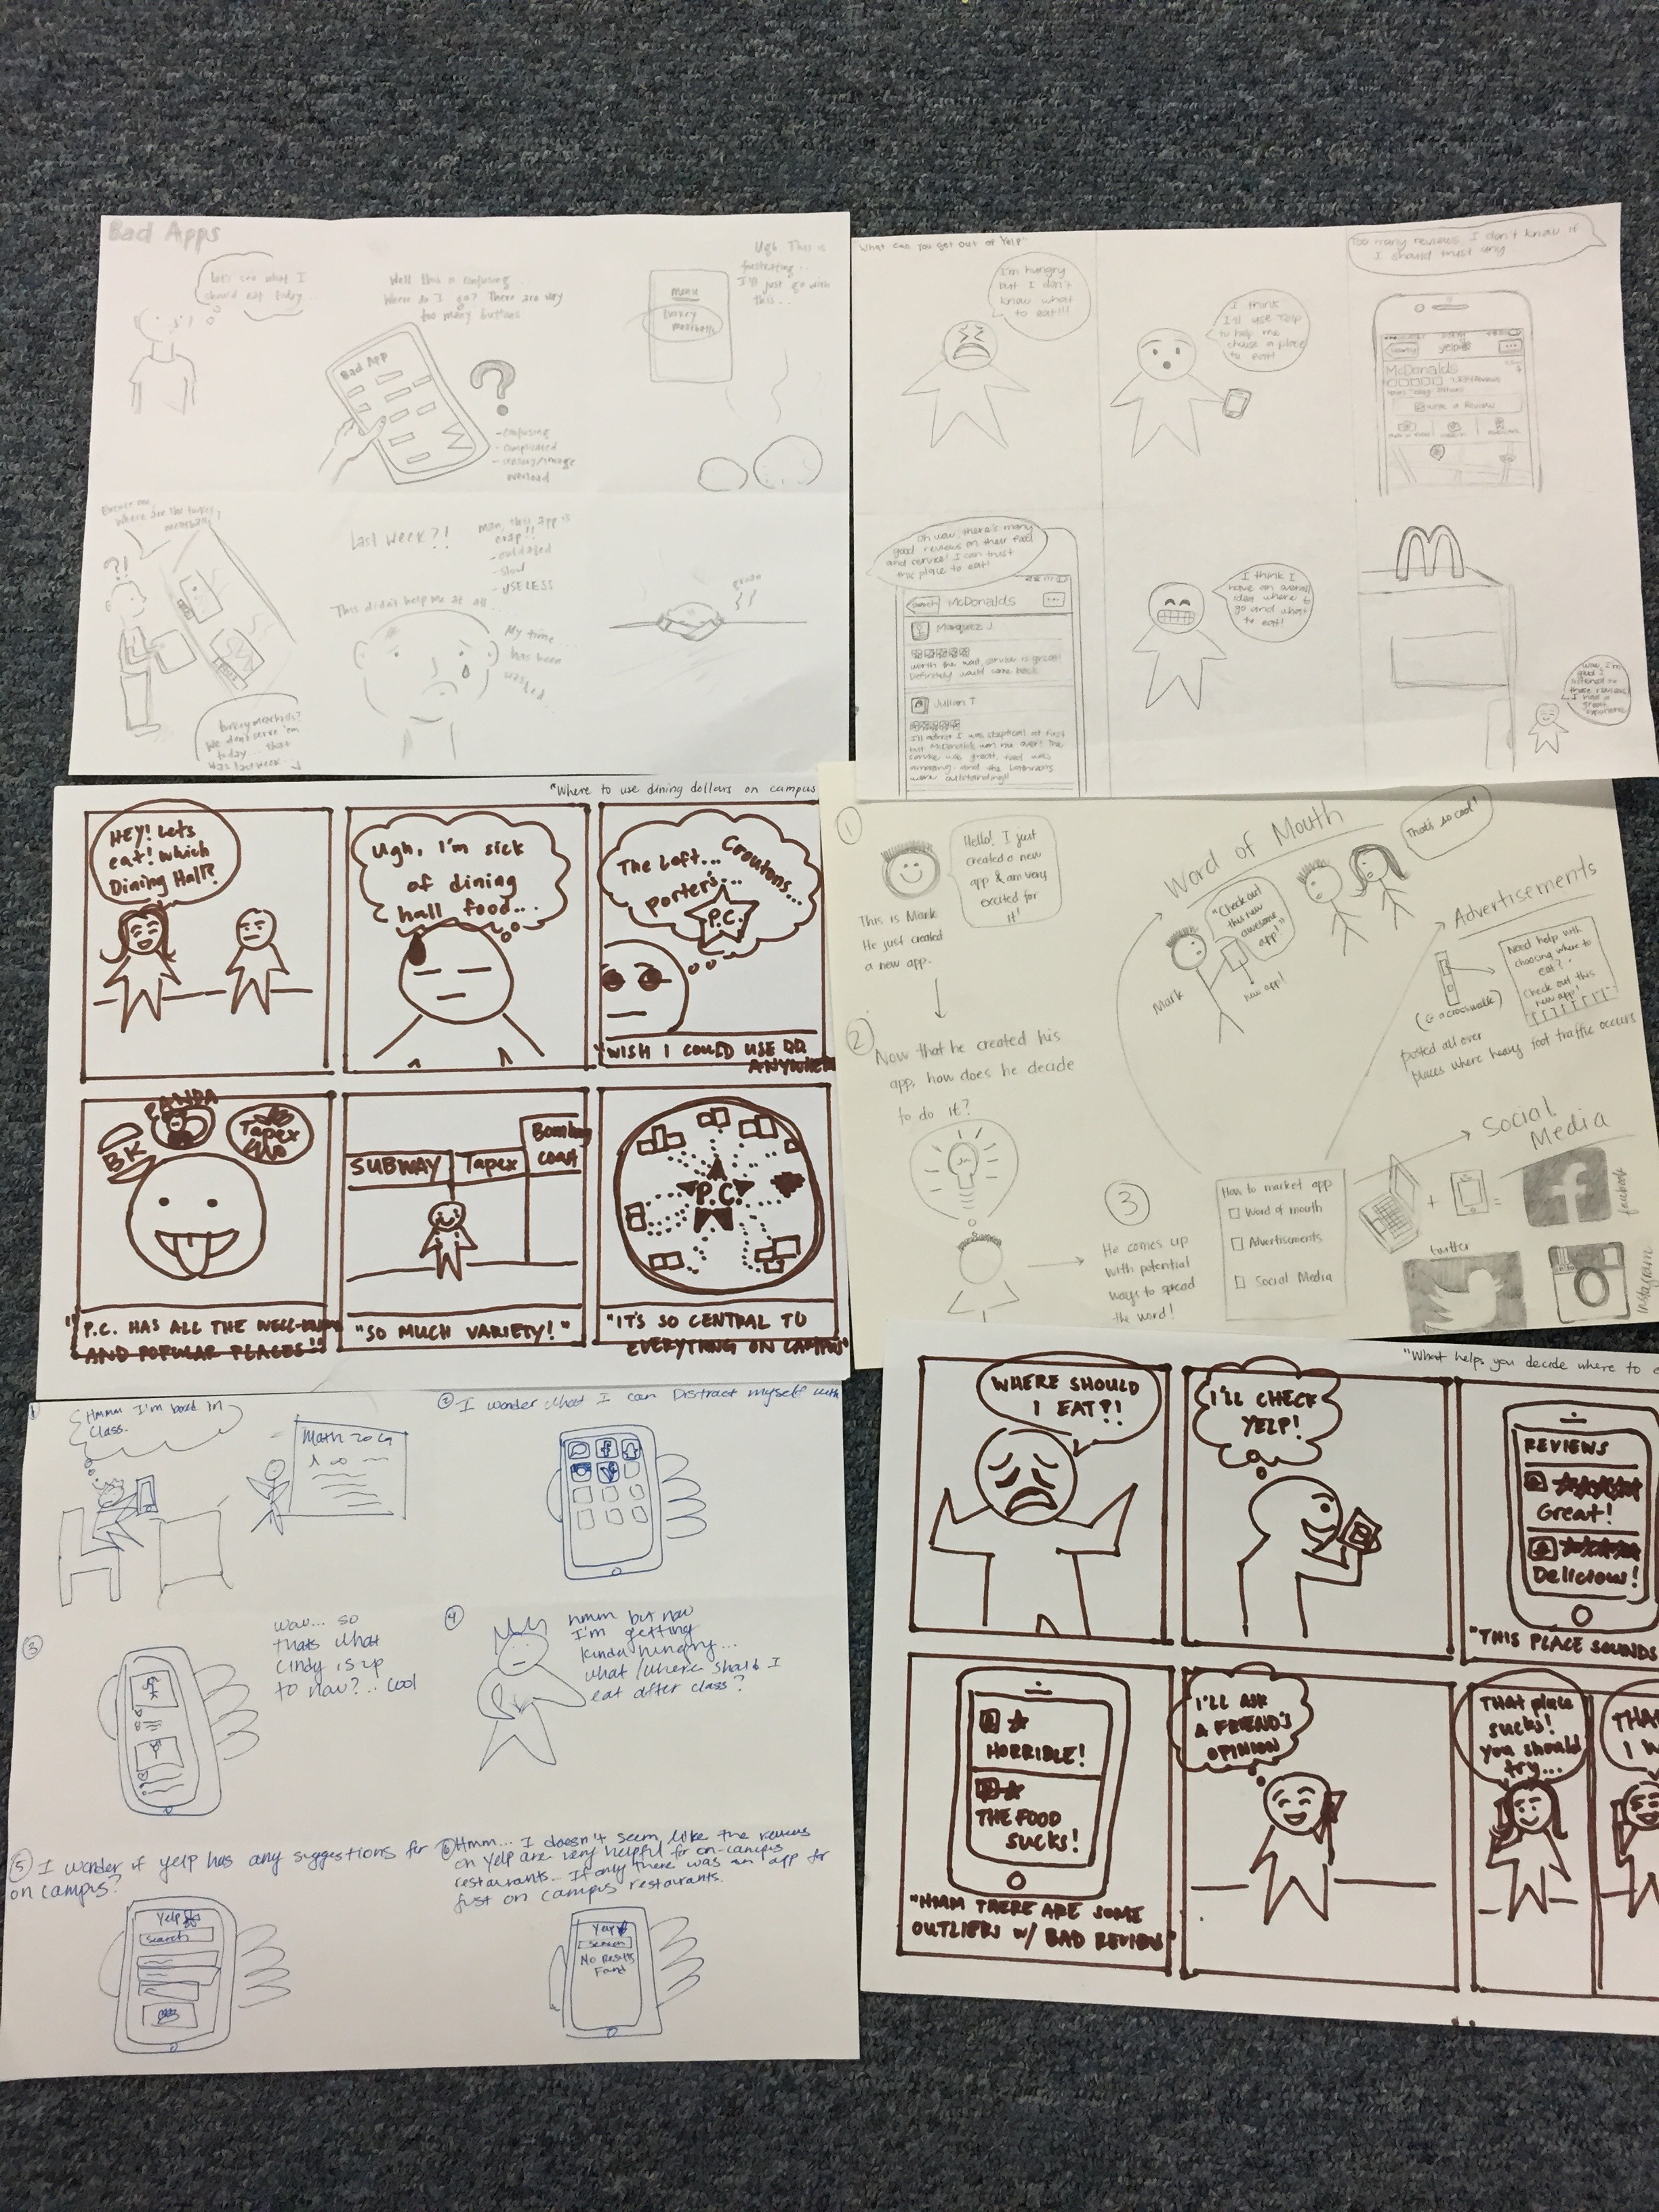 Bad Apps
Let's see what I
should eat today...
Well this is confusing...
Where do I go? There are way
too many buttons
Bad App
?
- confusing
- complicated
- sensory/image
overload
Ugh. This is
frustrating...
I'll just go with
this...
menu
turkey
meatballs
Excuse me,
Where are the turkey
meatballs?
?!
turkey meatballs?
We don't serve 'em
today... that
was last week...
Last week?!
man, this app is
crap!!
- outdated
- slow
- USELESS
This didn't help me at all...
My time
has been
wasted...
"What can you get out of Yelp"
I'm hungry
but I don't
know what
to eat!!!
I think
I'll use Yelp
to help me
choose a place
to eat!
Too many reviews, I don't know if
I should trust any
yelp
McDonalds
Write a Review
Oh wow, there's many
good reviews on their food
and service! I can trust
this place to eat!
McDonalds
Marquez J
worth the wait, service is great!
Definitely would come back
Julian T
I'll admit I was skeptical at first
but McDonalds won me over! The
service was great, food was
amazing, and the bathrooms
were outstanding!!
I think I
have an overall
idea where to
go and what
to eat!
Wow, I'm
good I
listened to
those reviews
I had a
great
experience
"Where to use dining dollars on campus
HEY! Lets
eat! Which
Dining Hall?
Ugh, I'm sick
of dining
hall food...
The Loft... Croutons...
porter's...
P.C.
"WISH I COULD USE DD
ANYWHERE
BK
PANDA
Tapex
"P.C. HAS ALL THE WELL-KNOWN
AND POPULAR PLACES!"
SUBWAY
Tapex
Bombay
Coast
"SO MUCH VARIETY!"
P.C.
"IT'S SO CENTRAL TO
EVERYTHING ON CAMPUS"
1
Hello! I just
created a new
app & am very
excited for
it!
This is Mark
He just created
a new app.
2
Now that he created his
app, how does he decide
to do it?
3
He comes up
with potential
ways to spread
the word!
How to market app
Word of mouth
Advertisements
Social Media
Word of Mouth
"Check out
this new
awesome
app!"
Mark
new app!
That's so cool!
Advertisements
(@ a crosswalk)
Need help with
choosing where to
eat?
Check out this
new app!
posted all over
places where heavy foot traffic occurs
Social
Media
+
=
f
facebook
twitter
Instagram
1
Hmmm I'm bored in
class.
Math 20
2 I wonder what I can Distract myself with
3
wow... so
thats what
Cindy is up
to now?.. cool
4
hmm but now
I'm getting
kinda hungry...
what/where should I
eat after class?
5 I wonder if yelp has any suggestions for
on campus?
Yelp
search
6 Hmm... I doesn't seem like the reviews
on Yelp are very helpful for on-campus
restaurants... If only there was an app for
just on campus restaurants.
Yelp
search
No Results
Found
"What helps you decide where to e
WHERE SHOULD
I EAT?!
I'LL CHECK
YELP!
REVIEWS
Great!
Delicious!
"THIS PLACE SOUNDS
HORRIBLE!
THE FOOD
SUCKS!
"HMM THERE ARE SOME
OUTLIERS W/ BAD REVIEW"
I'LL ASK
A FRIEND'S
OPINION
THAT place
sucks!
you should
try...
THA
I W